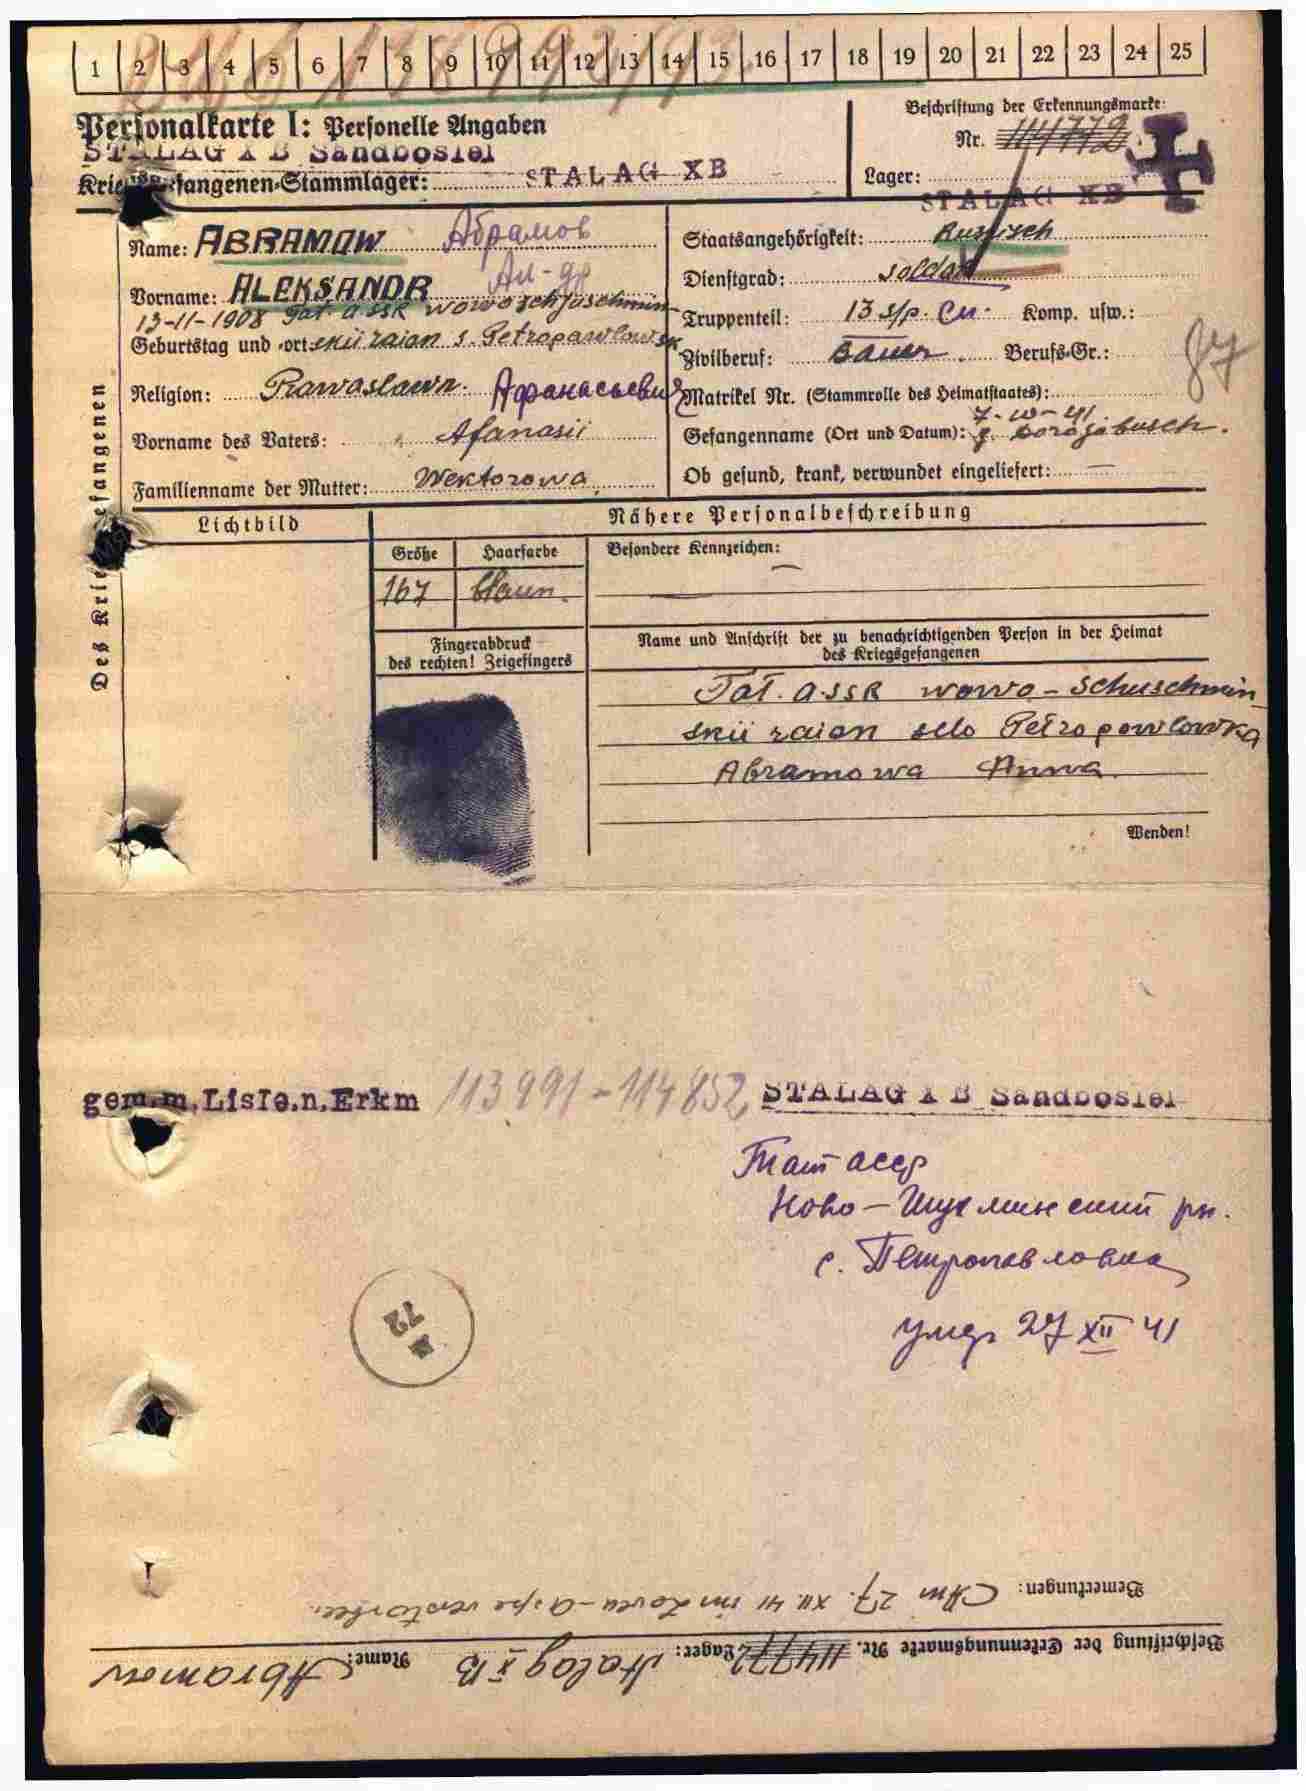 1 2 3 4 5 6 7 8 9 10 11 12 13 14 15 16 17 18 19 20 21 22 23 24 25
Personalkarte I: Personelle Angaben
STALAG X B Sandbostel
Kriegsgefangenen-Stammlager: STALAG XB
Beschriftung der Erkennungsmarke:
Nr. 114772
Lager: STALAG XB
Des Kriegsgefangenen
Name: ABRAMOW Абрамов
Vorname: ALEKSANDR Ал-др
13-11-1908 Tat. ASSR
Geburtstag und -ort: skii raion s. Petropawlowsk
Religion: Prawoslawn. Афанасьевич
Vorname des Vaters: Afanasii
Familienname der Mutter: Wektorowa
Staatsangehörigkeit: Russisch
Dienstgrad: Soldat
Truppenteil: 13 s/p. Komp. usw.:
Zivilberuf: Bauer. Berufs-Gr.:
87
Matrikel Nr. (Stammrolle des Heimatstaates):
Gefangennahme (Ort und Datum): 41 g. Dorogobusch.
Ob gesund, krank, verwundet eingeliefert: —
Lichtbild
Nähere Personalbeschreibung
Größe Haarfarbe
167
Besondere Kennzeichen:
—
Fingerabdruck
des rechten! Zeigefingers
Name und Anschrift der zu benachrichtigenden Person in der Heimat
des Kriegsgefangenen
Tat. ASSR nowo-Schuschmin
skii raion selo Petropawlowka
Abramowa Anna.
Wenden!
gem.m.Liste.n.Erkm 113991-114852 STALAG X B Sandbostel
Тат асср
Ново-Шушминский рн.
с. Петропавловка
умер 27 XII 41
72
Bemerkungen: Am 27. XII. 41 im verstorben.
Beschriftung der Erkennungsmarke Nr. 114772 Lager: Stalag X B Name: Abramow